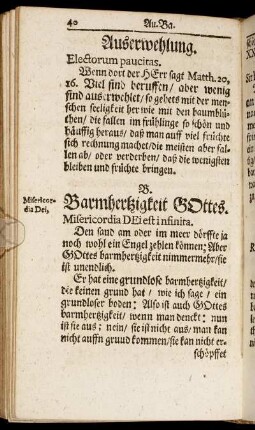 40 Au. Ba.
Auserwehlung.
Electorum paucitas.
Wenn dort der HErr sagt Matth. 20,
16. Viel sind beruffen/ aber wenig
sind auserwehlet/ so gehets mit der men-
schen seeligkeit her wie mit den baumblü-
then/ die fallen im frühlinge so schön und
häuffig heraus/ daß man auff viel früchte
sich rechnung machet/ die meisten aber fal-
len ab/ oder verderben/ daß die wenigsten
bleiben und früchte bringen.
B.
Barmhertzigkeit GOttes.
Misericor-
dia Dei,
Misericordia DEi est infinita.
Den sand am oder im meer dörffte ja
noch wohl ein Engel zehlen können; Aber
GOttes barmhertzigkeit nimmermehr/ sie
ist unendlich.
Er hat eine grundlose barmhertzigkeit/
die keinen grund hat/ wie ich sage/ ein
grundloser boden: Also ist auch GOttes
barmhertzigkeit/ wenn man denckt: nun
ist sie aus; nein/ sie ist nicht aus/ man kan
nicht auffn grund kommen/ sie kan nicht er-
schöpffet